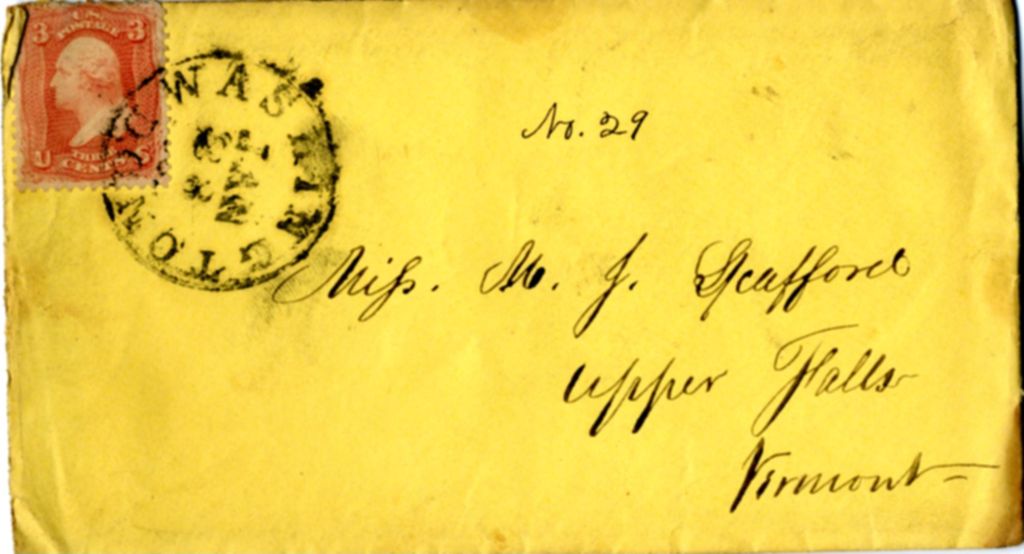 3 U.S. POSTAGE 3
U THREE CENTS S
WASHINGTON
MAR
No. 29
Miss. M. J. Seafford
Upper Falls
Vermont